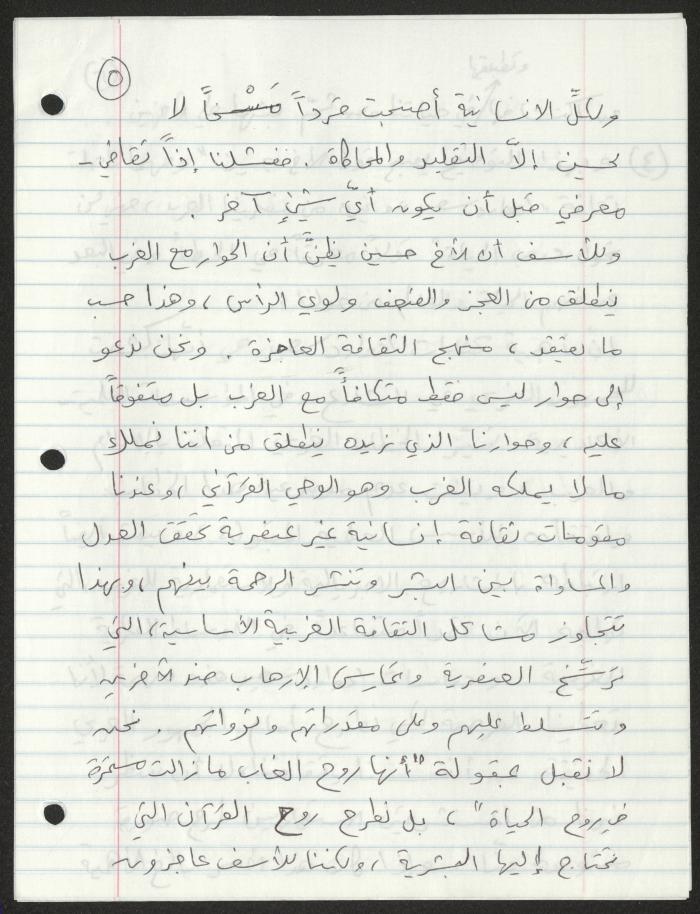 ٥
ولكلِّ الانسانية أصبحت قرداً مَسْخاً لا
يحسن إلاَّ التقليد والمحاكاة . ففشلنا إذاً ثقافي -
معرفي قبل أن يكون أيَّ شيءٍ آخر .
وللأسف أن الأخ حسين يظنُّ أن الحوار مع الغرب
ينطلق من العجز والضعف ولوي الرأس ، وهذا حسب
ما يعتقد ، منهج الثقافة العاجزة . ونحن ندعو
إلى حوار ليس فقط متكافأً مع الغرب بل متفوقاً
عليه ، وحوارنا الذي نريده ينطلق من أننا نملك
ما لا يملكه الغرب وهو الوحي القرآني ، وعندنا
مقومات ثقافة إنسانية غير عنصرية تحقق العدل
والمساواة بين البشر وتنشر الرحمة بينهم ، وبهذا
تتجاوز مشاكل الثقافة الغربية الأساسية ، التي
ترسّخ العنصرية وتمارس الإرهاب ضد الآخرين
وتتسلط عليهم وعلى مقدراتهم وثرواتهم . نحن
لا نقبل بمقولة "أنها روح الغاب ما زالت مستمرة
في روح الحياة" ، بل نطرح روح القرآن التي
تحتاج إليها البشرية ، ولكننا للأسف عاجزون